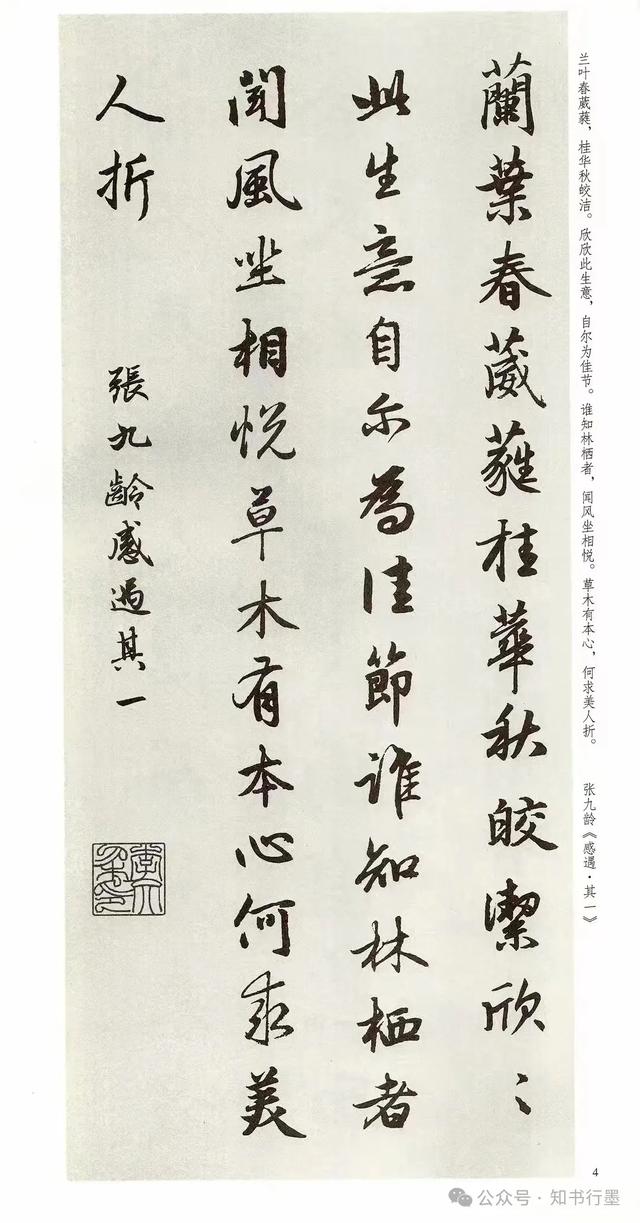 蘭葉春葳蕤桂華秋皎潔欣〻
此生意自尔為佳節誰知林栖者
聞風坐相悦草木有本心何求美
人折
張九齡感遇其一
兰叶春葳蕤，桂华秋皎洁。欣欣此生意，自尔为佳节。谁知林栖者，闻风坐相悦。草木有本心，何求美人折。 张九龄《感遇·其一》
4
公众号·知书行墨